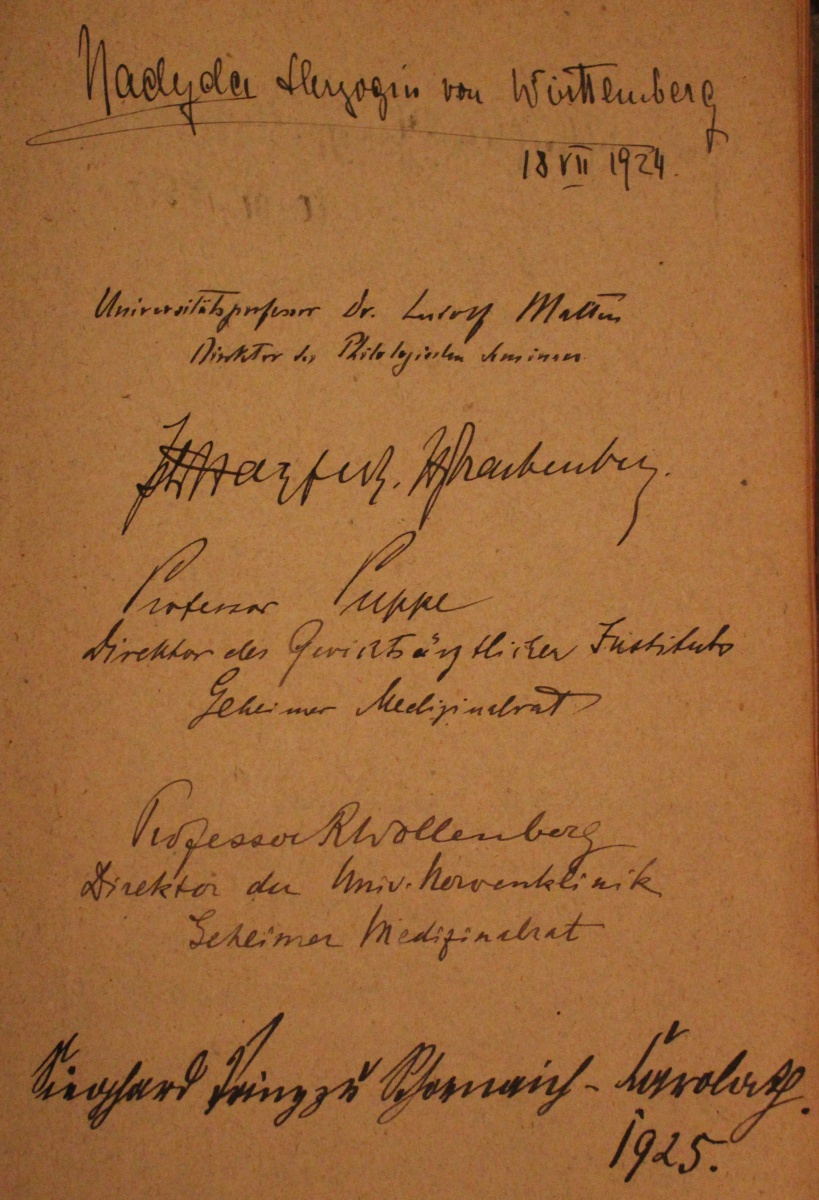 Nadejda Herzogin von Württemberg
18 VII 1924.
Universitätsprofessor Dr. Ludolf Malten
Direktor des Philologischen Seminars.
Professor Puppe
Direktor des Gerichtsärztlichen Instituts
Geheimer Medizinalrat
Professor R Wollenberg
Direktor der Univ. Nervenklinik
Geheimer Medizinalrat
Sieghard Prinz zu Schoenaich - Carolath.
1925.